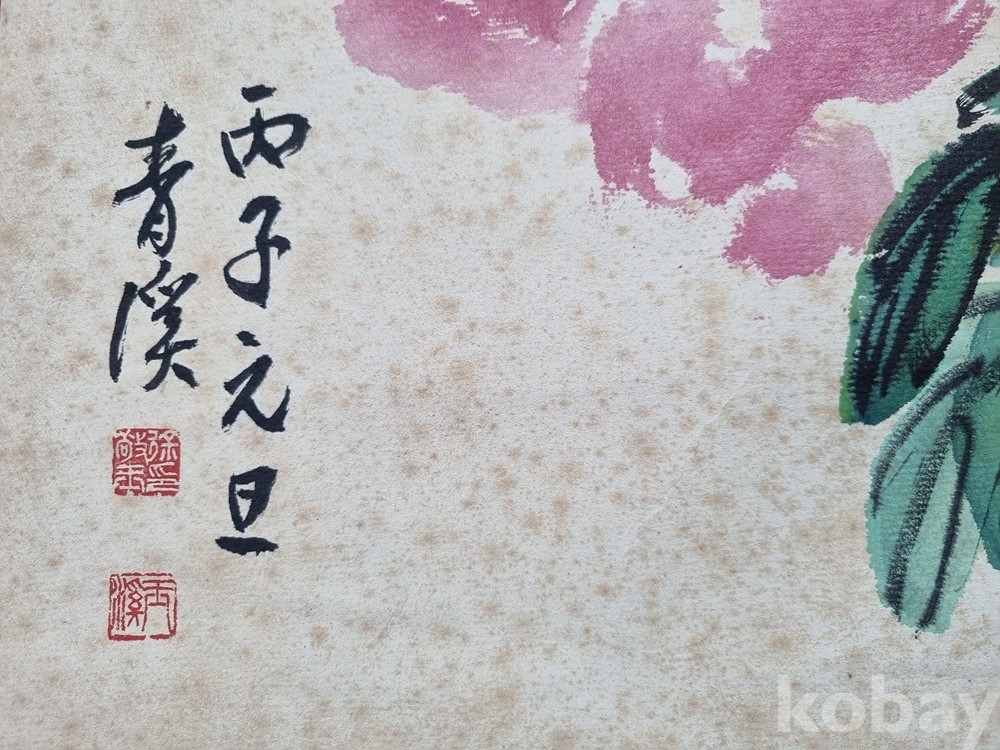 丙子元旦
青溪
kobay